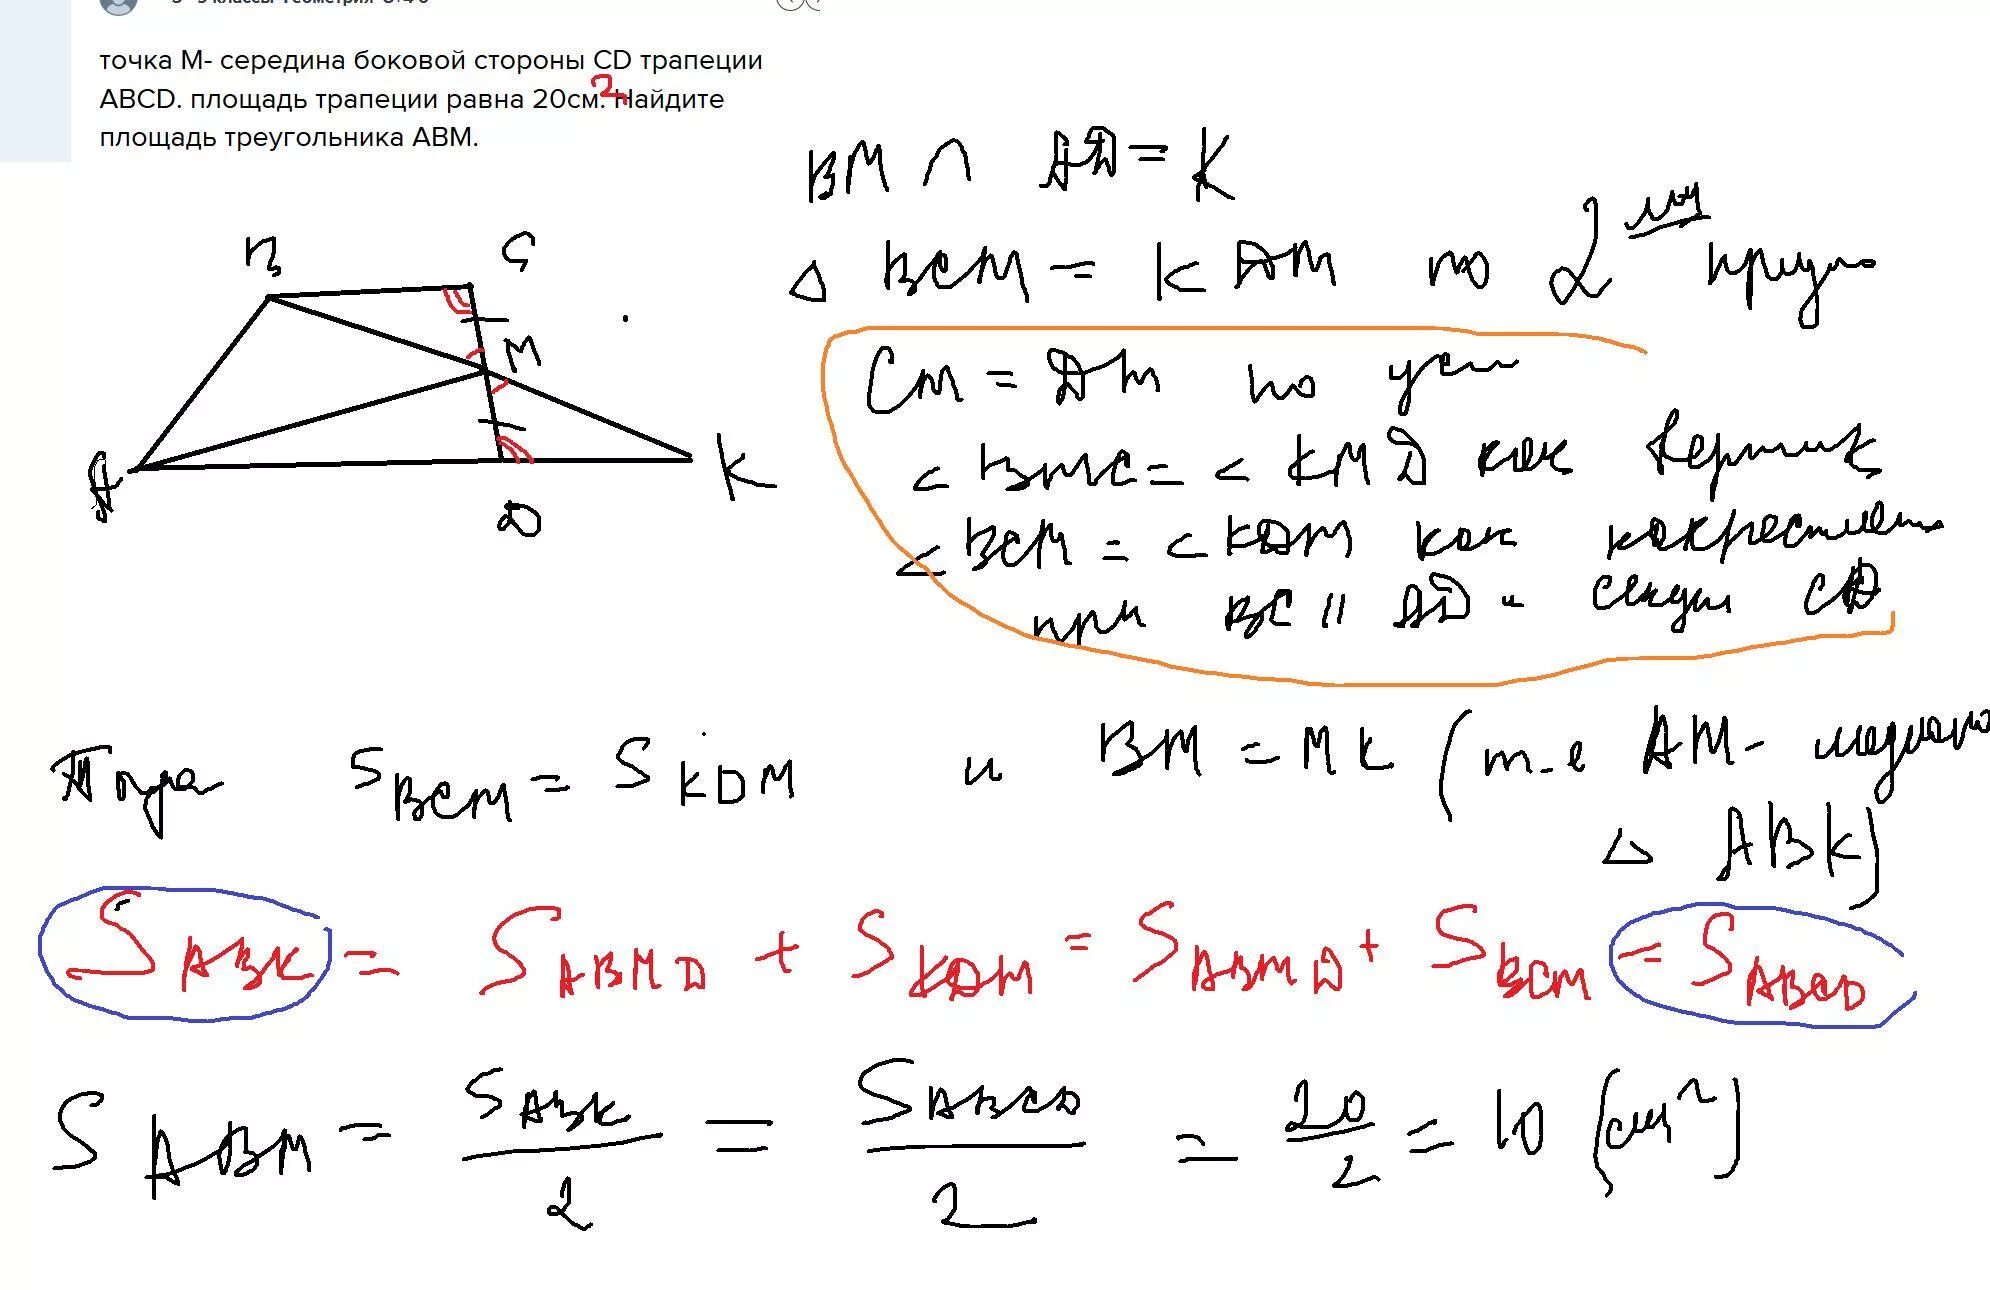 точка М- середина боковой стороны CD трапеции
ABCD. площадь трапеции равна 20см.2 Найдите
площадь треугольника АВМ.
BM ∩ AD = K
△ BCM = KDM по 2
B C
M
A D K
CM = DM по усл
< BMC = < KMD как вертик
< BCM = < KDM как накрестлеж
при BC || AD и секущ CD
Тогда S BCM = S KDM и BM = MK (т-е AM - медиана
△ ABK)
S ABK = S ABMD + S KDM = S ABMD + S BCM = S ABCD
S ABM = S ABK / 2 = S ABCD / 2 = 20 / 2 = 10 (см²)